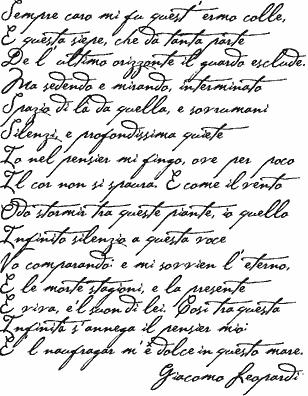 Sempre caro mi fu quest' ermo colle,
E questa siepe, che da tanta parte
De l' ultimo orizzonte il guardo esclude.
Ma sedendo e mirando, interminato
Spazio di là da quella, e sovrumani
Silenzi, e profondissima quiete
Io nel pensier mi fingo, ove per poco
Il cor non si spaura. E come il vento
Odo stormir tra queste piante, io quello
Infinito silenzio a questa voce
Vo comparando: e mi sovvien l' eterno,
E le morte stagioni, e la presente
E viva, e 'l suon di lei. Così tra questa
Infinità s'annega il pensier mio:
E 'l naufragar m'è dolce in questo mare.
Giacomo Leopardi